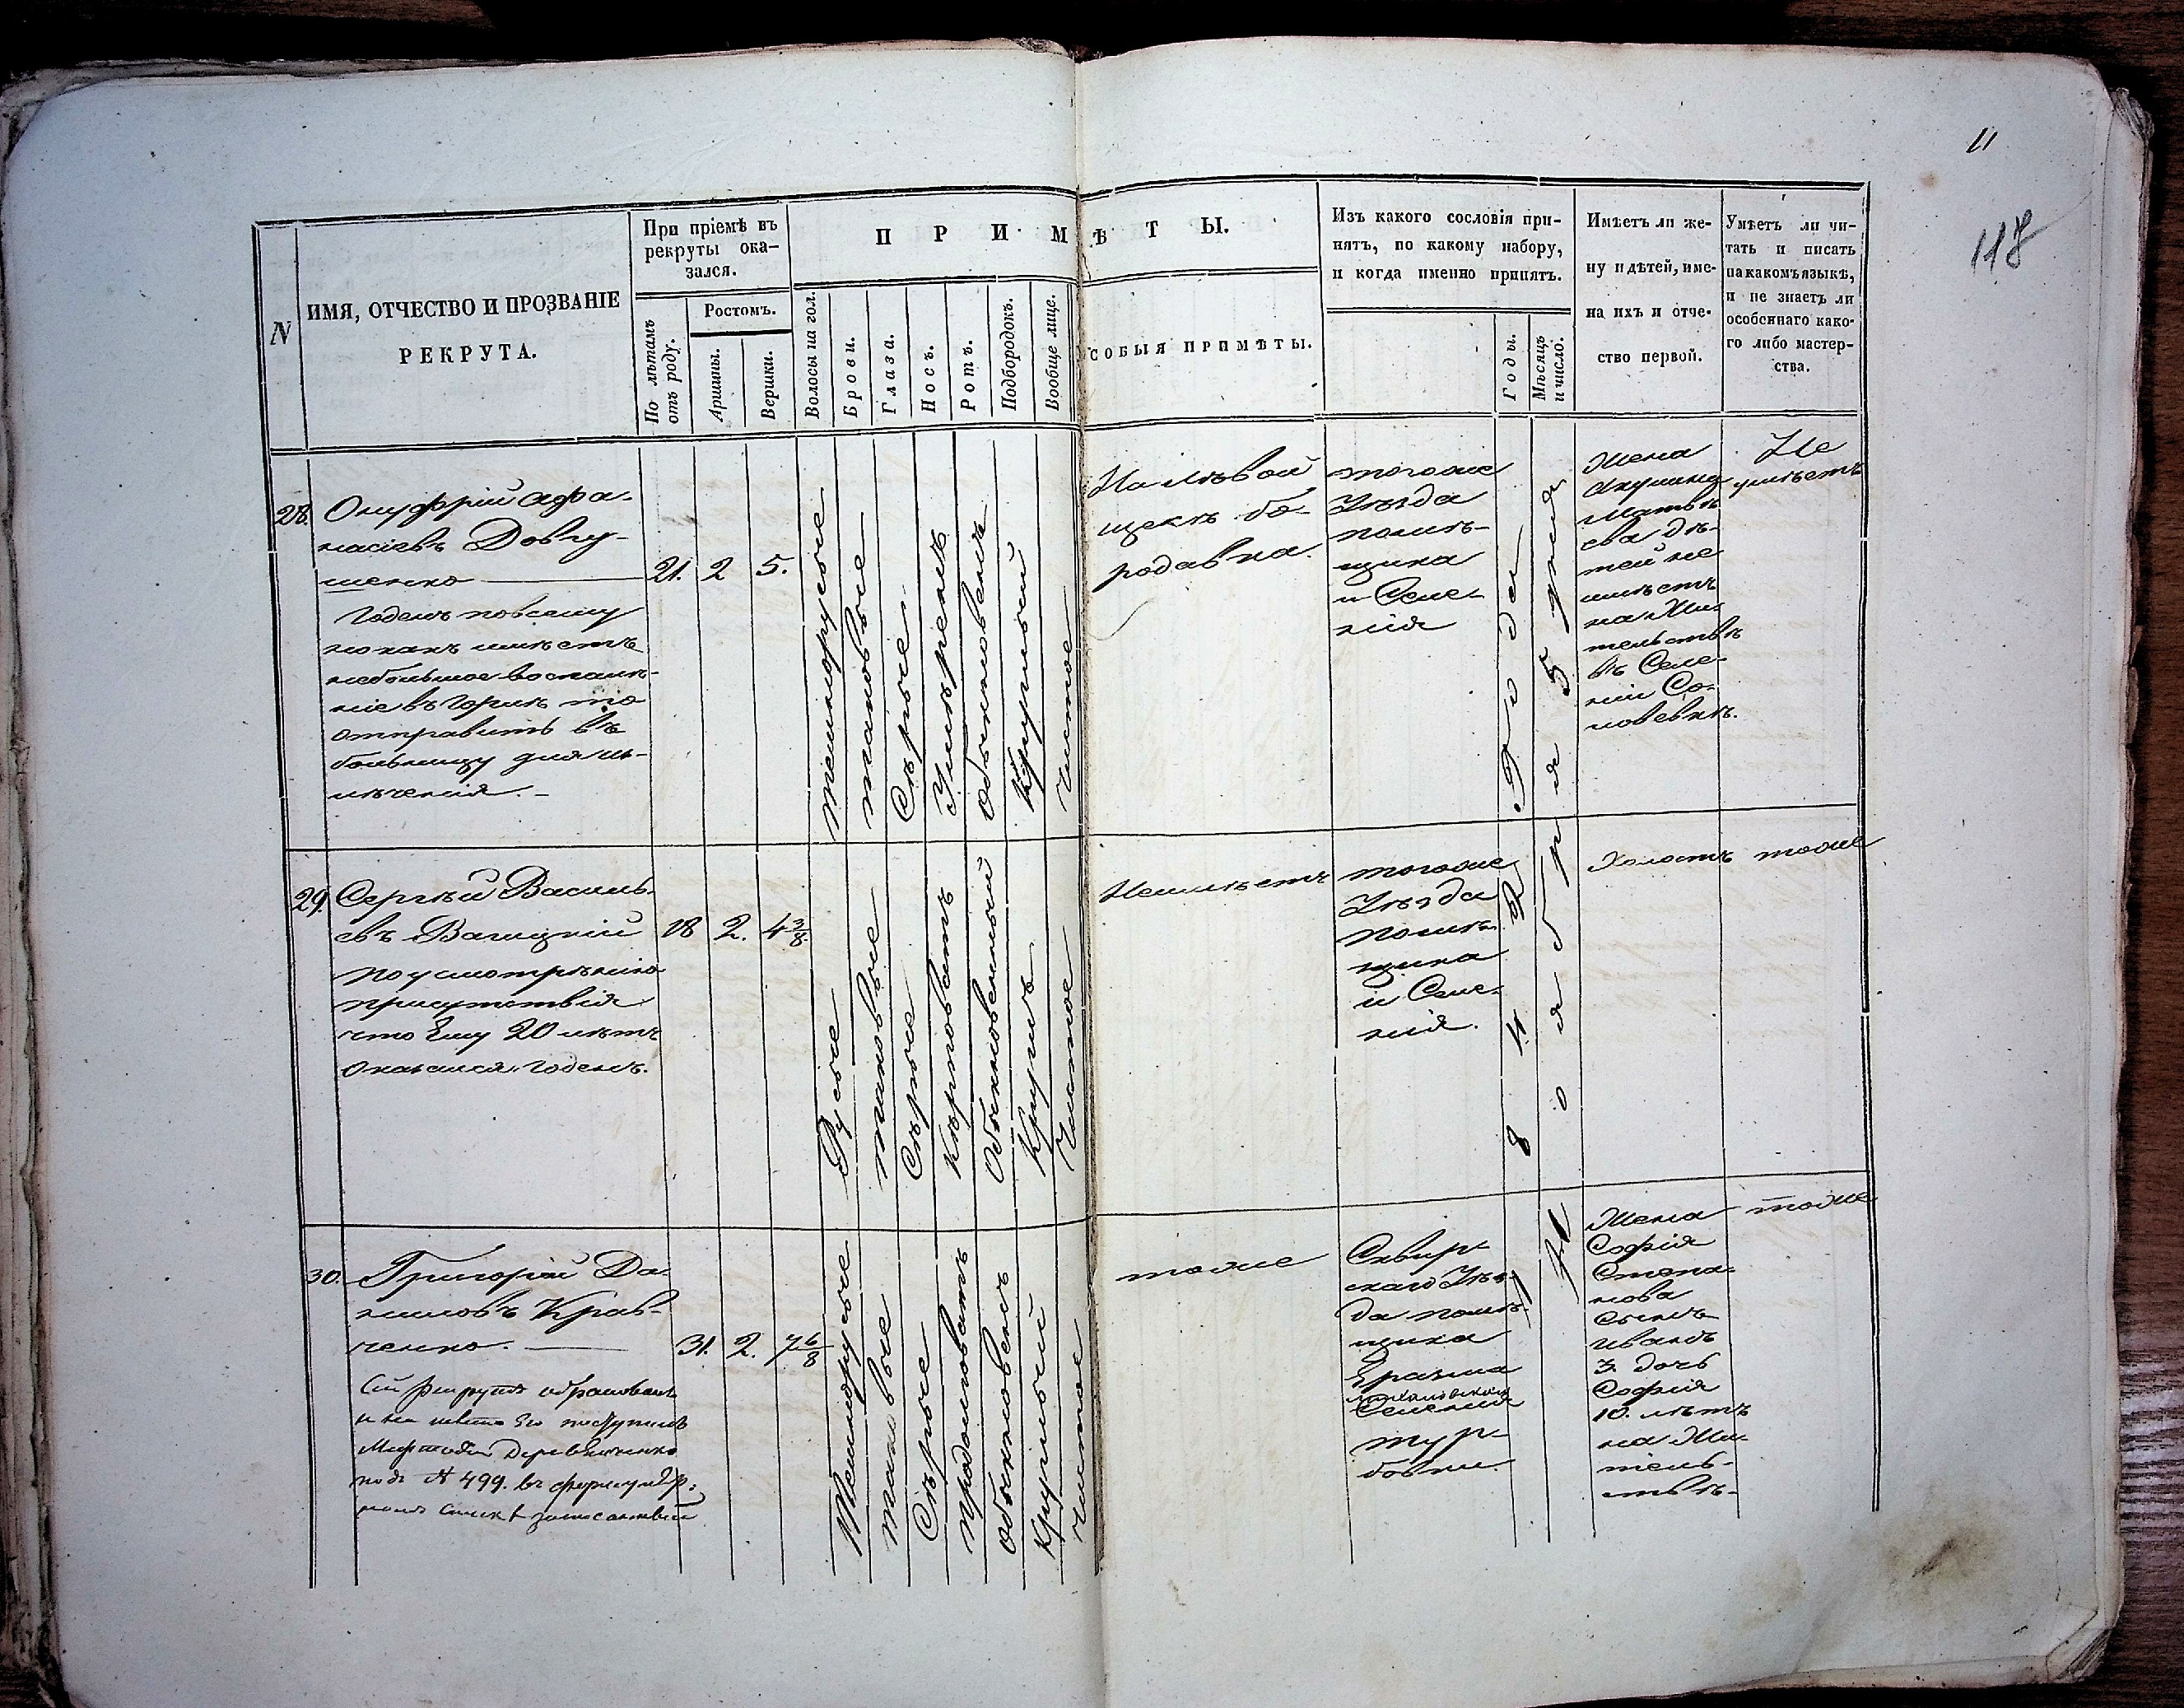 11
117
N
ИМЯ, ОТЧЕСТВО И ПРОЗВАНІЕ
РЕКРУТА.
При пріемѣ въ
рекруты ока-
зался.
По лѣтамъ
отъ роду.
Ростомъ.
Аршины.
Вершки.
ПРИМѢТЫ.
Волосы на гол.
Брови.
Глаза.
Носъ.
Ротъ.
Подбородокъ.
Вообще лице.
СОБЫЯ ПРИМѢТЫ.
Изъ какого сословія при-
нятъ, по какому набору,
и когда именно принятъ.
Годы.
Мѣсяцъ
и число.
Имѣетъ ли же-
ну и дѣтей, име-
на ихъ и отче-
ство первой.
Умѣетъ ли чи-
тать и писать
на какомъ языкѣ,
и не знаетъ ли
особеннаго како-
го либо мастер-
ства.
28.
Онуфрій Афа-
насіевъ Довгу-
шенко
Годенъ по всему
но какъ имѣетъ
небольшое воспале-
ніе въ горлѣ то
отправить въ
больницу для из-
лѣченія.
21.
2
5.
темнорусые
таковые
Сѣрые
Умѣренъ
Обыкновенъ
Круглый
Чистое
На лѣвой
щекѣ бо-
родавка.
тогоже
Уѣзда
помѣ-
щика
и Селе-
нія
Жена
Акулина
Матвѣ-
ева дѣ-
тей не
имѣетъ
на Жи-
тельствѣ
въ Селе-
ніи Со-
ловевкѣ.
Не
умѣетъ
29.
Сергѣй Василь-
евъ Вагицкій
По усмотрѣнію
присутствія
что Ему 20 лѣтъ
оказался годенъ.
18
2.
4 3/8.
Русые
таковые
Сѣрые
Кѣрповатъ
Обыкновенный
Круглъ
Чистое
Неимѣетъ
тогоже
Уѣзда
помѣ-
щика
и Селе-
нія.
Холостъ
тоже
30.
Григорій Да-
ниловъ Крав-
ченко.
Сей рекрутъ обракованъ
и на мѣсто Его поступилъ
Деревянченко
подъ № 499.
31.
2.
7 6/8
Темнорусые
таковые
Сѣрые
продолговатъ
обыкновенъ
Круглый
чистое
тоже
Сквир-
скаго Уѣз-
да помѣ-
щика
Еразма
Михаловскаго
Селенія
тур-
бовки.
Жена
Софія
Степа-
нова
Сынъ
Иванъ
3. дочь
Софія
10. лѣтъ
на Жи-
тель-
ствѣ
тоже
года
5 дня